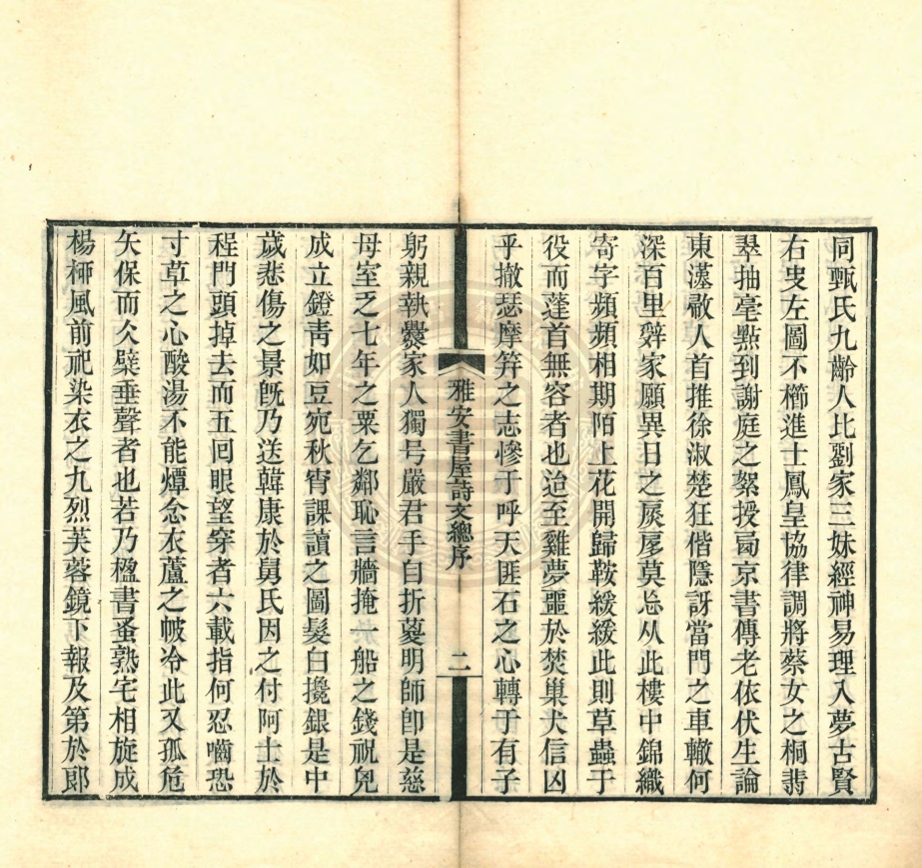 同甄氏九齡人比劉家三妹經神易理入夢古賢
右史左圖不櫛進士鳳皇協律調將蔡女之桐翡
翠抽毫點到謝庭之絮授曷京書傳老依伏生論
東漢敵人首推徐淑楚狂偕隱訝當門之車轍何
深百里辭家願異日之扊扅莫忘从此樓中錦織
寄字頻頻相期陌上花開歸鞍緩緩此則草蟲于
役而蓬首無容者也迨至雞夢噩於焚巢犬信凶
乎撤瑟摩笄之志慘于呼天匪石之心轉于有子
雅安書屋詩文總序 二
躬親執爨家人獨号嚴君手自折葼明師卽是慈
母室乏七年之粟乞鄰恥言牆掩一船之錢祝兒
成立鐙靑如豆宛秋宵課讀之圖髮白攙銀是中
歲悲傷之景旣乃送韓康於舅氏因之付阿士於
程門頭掉去而五回眼望穿者六載指何忍嚙恐
寸草之心酸湯不能燂念衣蘆之帔冷此又孤危
矢保而久檗垂聲者也若乃楹書蚤熟宅相旋成
楊柳風前祀染衣之九烈芙蓉鏡下報及第於郞